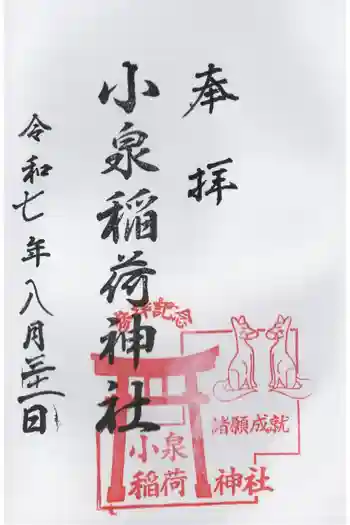 奉拝
小泉稲荷神社
令和七年八月三十一日
参拝記念
諸願成就
小泉
稲荷神社